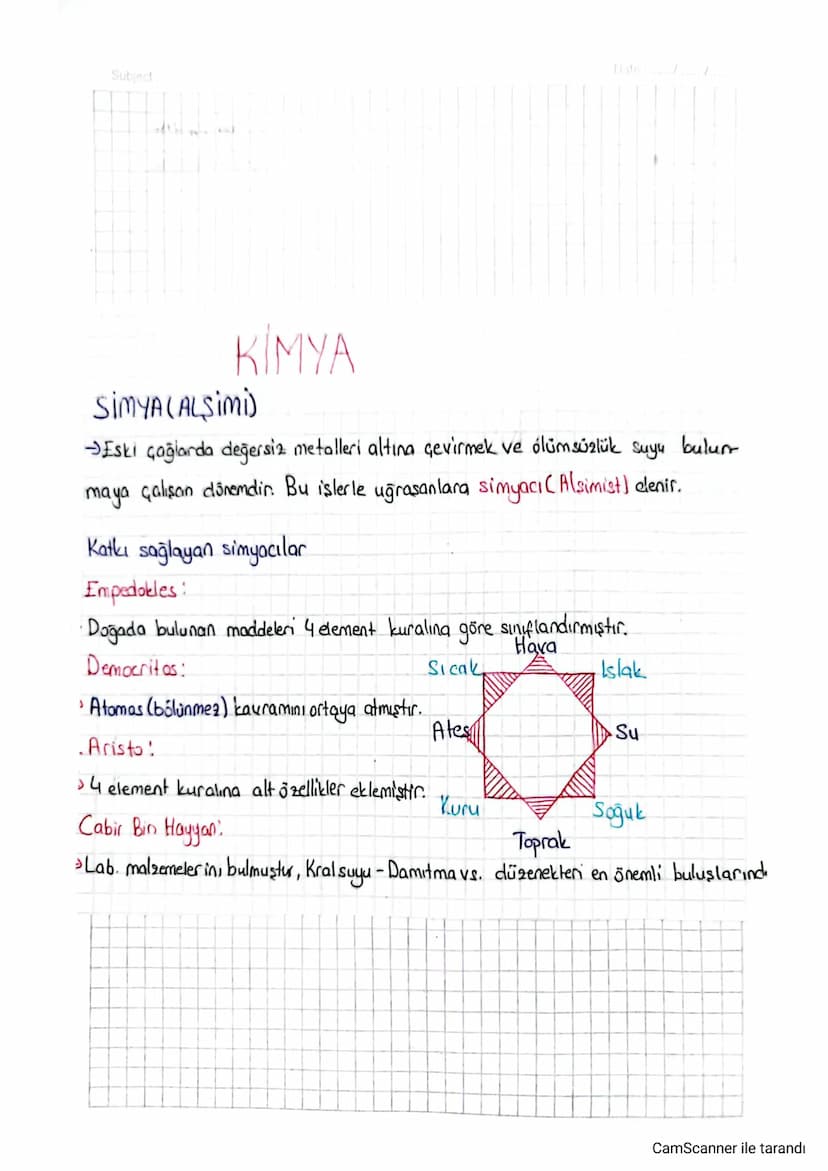 Subject
Date ... / ... / ...
KİMYA
SİMYA (ALŞİMİ)
→Eski çağlarda değersiz metalleri altına çevirmek ve ölümsüzlük suyu bulun-
maya çalışan dönemdir. Bu işlerle uğraşanlara simyacı (Alşimist) denir.
Katkı sağlayan simyacılar
Empedokles:
Doğada bulunan maddeleri 4 element kuralına göre sınıflandırmıştır.
Hava
Democritos:
Sıcak
Islak
Atomas (bölünmez) kavramını ortaya atmıştır.
Ateş
Su
.Aristo:
4 element kuralına alt özellikler eklemiştir.
Kuru
Soğuk
Cabir Bin Hayyan:
Toprak
Lab. malzemelerini bulmuştur, Kral suyu - Damıtma vs. düzenekleri en önemli buluşlarınd
CamScanner ile tarandı